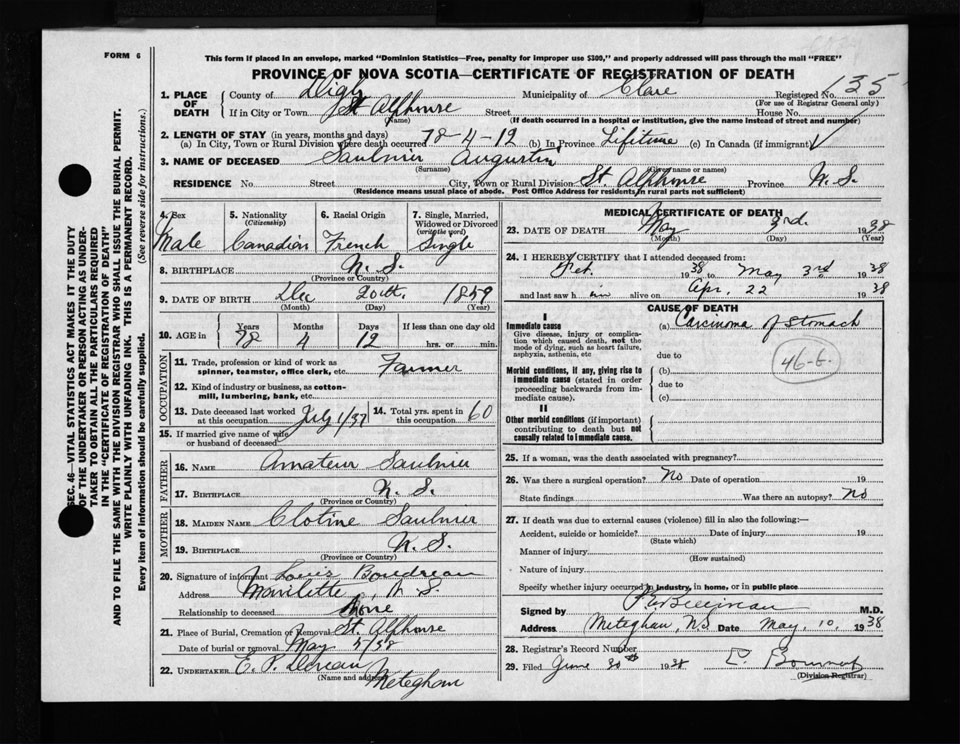 FORM 6
This form if placed in an envelope, marked "Dominion Statistics—Free, penalty for improper use $300," and properly addressed will pass through the mail "FREE"
PROVINCE OF NOVA SCOTIA—CERTIFICATE OF REGISTRATION OF DEATH
SEC. 46—VITAL STATISTICS ACT MAKES IT THE DUTY
OF THE UNDERTAKER OR PERSON ACTING AS UNDER-
TAKER TO OBTAIN ALL THE PARTICULARS REQUIRED
IN THE "CERTIFICATE OF REGISTRATION OF DEATH"
AND TO FILE THE SAME WITH THE DIVISION REGISTRAR WHO SHALL ISSUE THE BURIAL PERMIT.
WRITE PLAINLY WITH UNFADING INK. THIS IS A PERMANENT RECORD.
Every item of information should be carefully supplied. (See reverse side for instructions.)
1. PLACE OF DEATH County of Digby Municipality of Clare Registered No. 135
(For use of Registrar General only)
If in City or Town St Alphonse Street House No.
(Name) (If death occurred in a hospital or institution, give the name instead of street and number)
2. LENGTH OF STAY (in years, months and days)
(a) In City, Town or Rural Division where death occurred 78-4-12 (b) In Province Lifetime (c) In Canada (if immigrant)
3. NAME OF DECEASED Saulnier Augustin
(Surname) (Given name or names)
RESIDENCE No. Street City, Town or Rural Division St. Alphonse Province N. S.
(Residence means usual place of abode. Post Office Address for residents in rural parts not sufficient)
4. Sex Male
5. Nationality (Citizenship) Canadian
6. Racial Origin French
7. Single, Married, Widowed or Divorced (write the word) Single
8. BIRTHPLACE N. S.
(Province or Country)
9. DATE OF BIRTH Dec 20th. 1859
(Month) (Day) (Year)
10. AGE in Years 78 Months 4 Days 12 If less than one day old hrs. or min.
OCCUPATION
11. Trade, profession or kind of work as spinner, teamster, office clerk, etc. Farmer
12. Kind of industry or business, as cotton-mill, lumbering, bank, etc.
13. Date deceased last worked at this occupation July 1/37 14. Total yrs. spent in this occupation 60
15. If married give name of wife or husband of deceased
FATHER
16. NAME Amateur Saulnier
17. BIRTHPLACE N. S.
(Province or Country)
MOTHER
18. MAIDEN NAME Clotine Saulnier
19. BIRTHPLACE N. S.
(Province or Country)
20. Signature of informant Louis Boudreau
Address Mavilette, N. S.
Relationship to deceased None
21. Place of Burial, Cremation or Removal St. Alphonse
Date of burial or removal May 5/38
22. UNDERTAKER E. P. Doucet
(Name and address) Meteghan
MEDICAL CERTIFICATE OF DEATH
23. DATE OF DEATH May 3rd. 1938
(Month) (Day) (Year)
24. I HEREBY CERTIFY that I attended deceased from:
Feb. 1938 to May 3rd 1938
and last saw him alive on Apr. 22 1938
CAUSE OF DEATH
I
Immediate cause
Give disease, injury or complication which caused death, not the mode of dying, such as heart failure, asphyxia, asthenia, etc
(a) Carcinoma of Stomach
due to
46-b.
Morbid conditions, if any, giving rise to immediate cause (stated in order proceeding backwards from immediate cause).
(b)
due to
(c)
II
Other morbid conditions (if important) contributing to death but not causally related to immediate cause.
25. If a woman, was the death associated with pregnancy?
26. Was there a surgical operation? No Date of operation 19
State findings Was there an autopsy? No
27. If death was due to external causes (violence) fill in also the following:—
Accident, suicide or homicide? Date of injury 19
(State which)
Manner of injury
(How sustained)
Nature of injury
Specify whether injury occurred in industry, in home, or in public place
Signed by M.D.
Address Meteghan, N.S Date May, 10, 1938
28. Registrar's Record Number
29. Filed June 30th 1938
(Division Registrar)